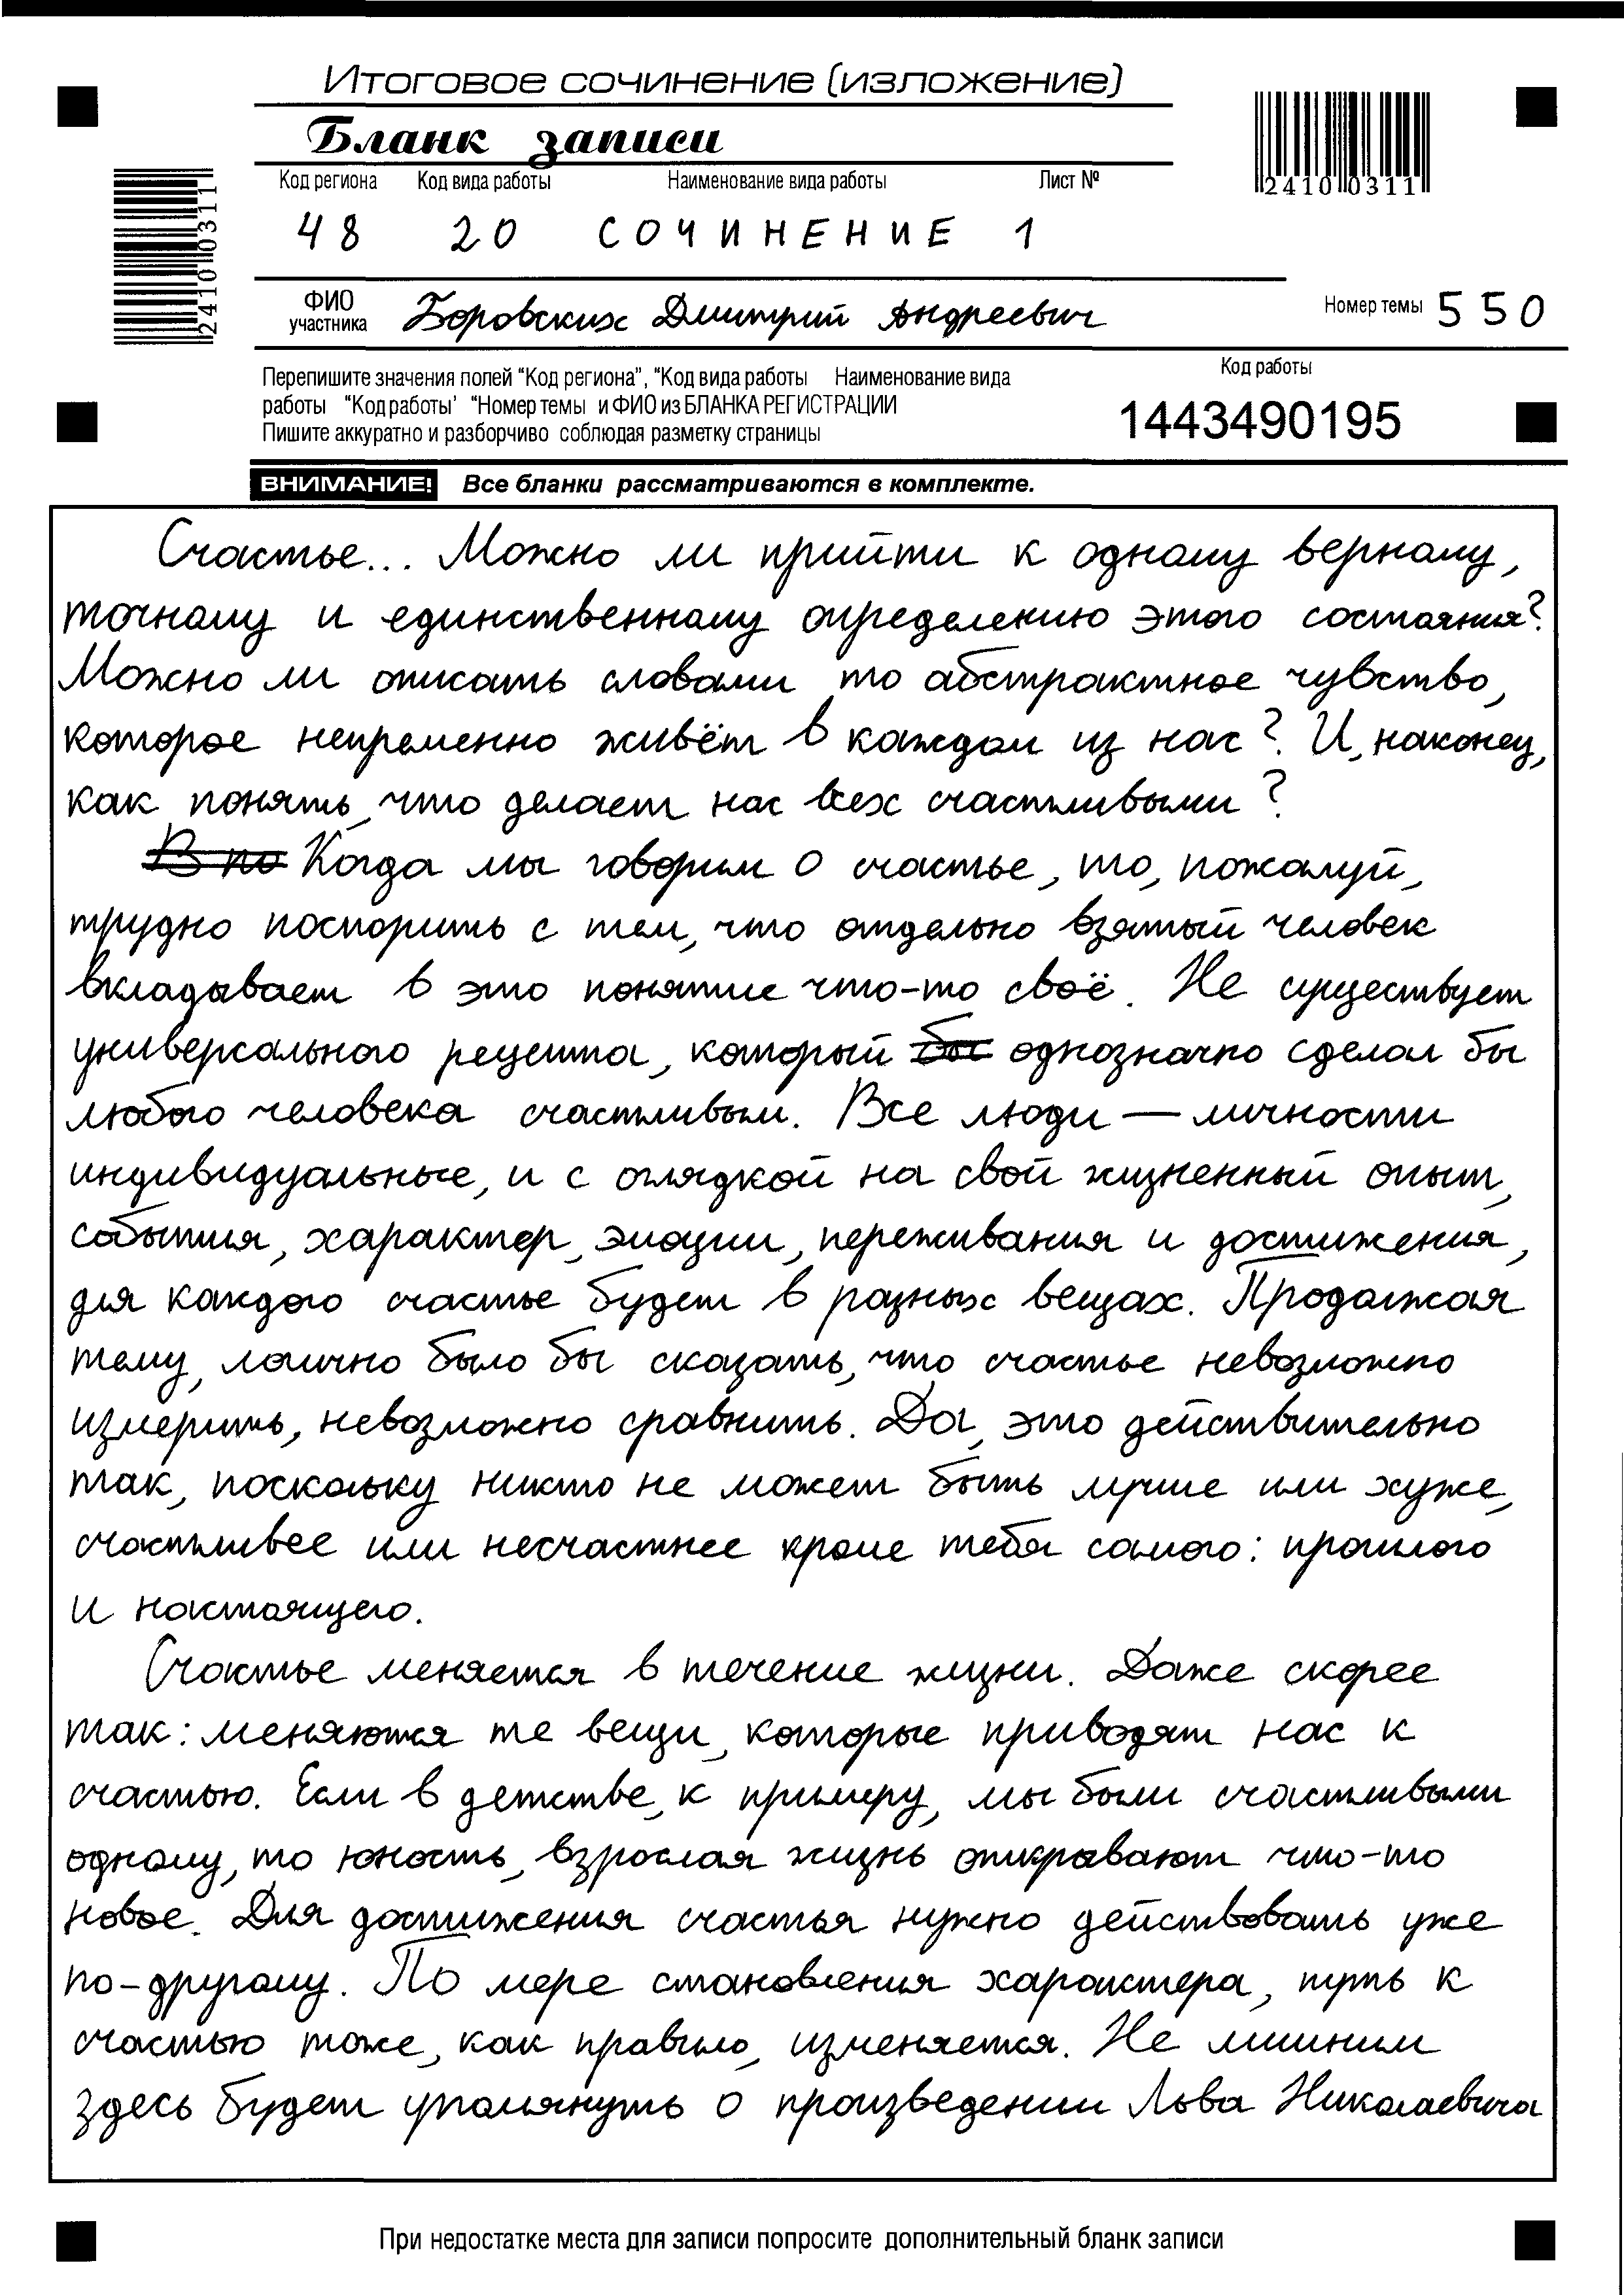 Итоговое сочинение (изложение)
Бланк записи
Код региона Код вида работы Наименование вида работы Лист №
48 20 СОЧИНЕНИЕ 1
24100311
24100311
ФИО участника Боровских Дмитрий Андреевич Номер темы 550
Перепишите значения полей "Код региона", "Код вида работы Наименование вида
работы "Код работы' "Номер темы и ФИО из БЛАНКА РЕГИСТРАЦИИ
Пишите аккуратно и разборчиво соблюдая разметку страницы
Код работы
1443490195
ВНИМАНИЕ! Все бланки рассматриваются в комплекте.
Счастье... Можно ли прийти к одному верному,
точному и единственному определению этого состояния?
Можно ли описать словами то абстрактное чувство,
которое непременно живёт в каждом из нас? И, наконец,
как понять, что делает нас всех счастливыми?
В по Когда мы говорим о счастье, то, пожалуй,
трудно поспорить с тем, что отдельно взятый человек
вкладывает в это понятие что-то своё. Не существует
универсального рецепта, который бы однозначно сделал бы
любого человека счастливым. Все люди — личности
индивидуальные, и с оглядкой на свой жизненный опыт,
события, характер, эмоции, переживания и достижения,
для каждого счастье будет в разных вещах. Продолжая
тему, логично было бы сказать, что счастье невозможно
измерить, невозможно сравнить. Да, это действительно
так, поскольку никто не может быть лучше или хуже,
счастливее или несчастнее кроме тебя самого: прошлого
и настоящего.
Счастье меняется в течение жизни. Даже скорее
так: меняются те вещи, которые приводят нас к
счастью. Если в детстве, к примеру, мы были счастливыми
одному, то юность, взрослая жизнь открывают что-то
новое. Для достижения счастья нужно действовать уже
по-другому. По мере становления характера, путь к
счастью тоже, как правило, изменяется. Не лишним
здесь будет упомянуть о произведении Льва Николаевича
При недостатке места для записи попросите дополнительный бланк записи